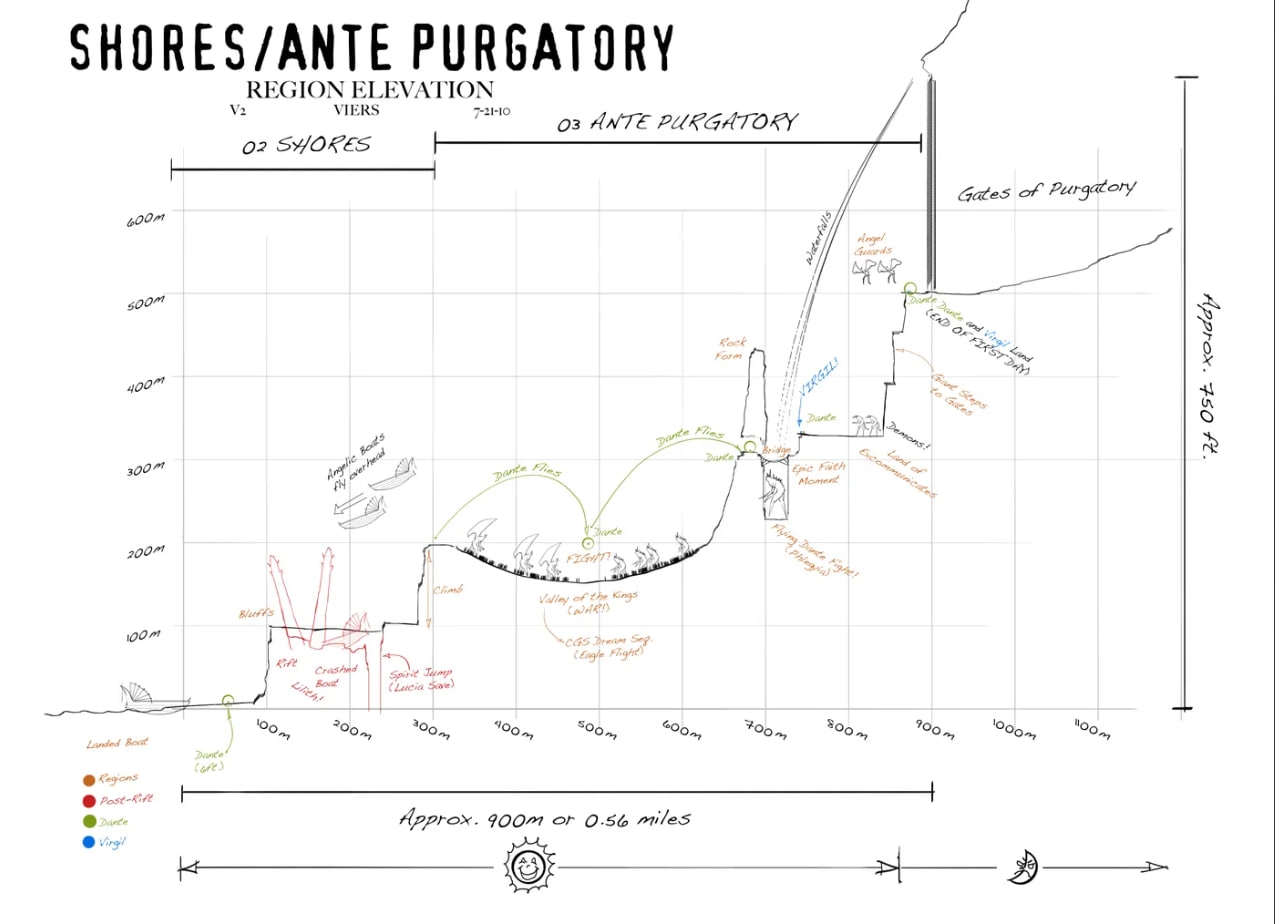 SHORES/ANTE PURGATORY
REGION ELEVATION
V2 VIERS 7-21-10
02 SHORES
03 ANTE PURGATORY
Gates of Purgatory
600m
500m
400m
300m
200m
100m
Waterfalls
Angel
Guards
Dante Dante and Virgil Land
(END OF FIRST DAY)
Giant Steps
to Gates
Rock
Form
VIRGIL!
Dante
Demons!
Land of
Excommunicates
Dante Flies
Dante Flies
Dante
Bridge
Epic Faith
Moment
Flying Dante Fight!
(Phlegyia)
Angelic Boats
fly overhead
Dante
FIGHT!
Valley of the Kings
(WAR!)
CGS Dream Seq.
(Eagle Flight)
Climb
Bluffs
Rift
Lilith!
Crashed
Boat
Spirit Jump
(Lucia Save)
100m 200m 300m 400m 500m 600m 700m 800m 900m 1000m 1100m
Landed Boat
Dante
(6ft)
Regions
Post-Rift
Dante
Virgil
Approx. 900m or 0.56 miles
Approx. 750 ft.